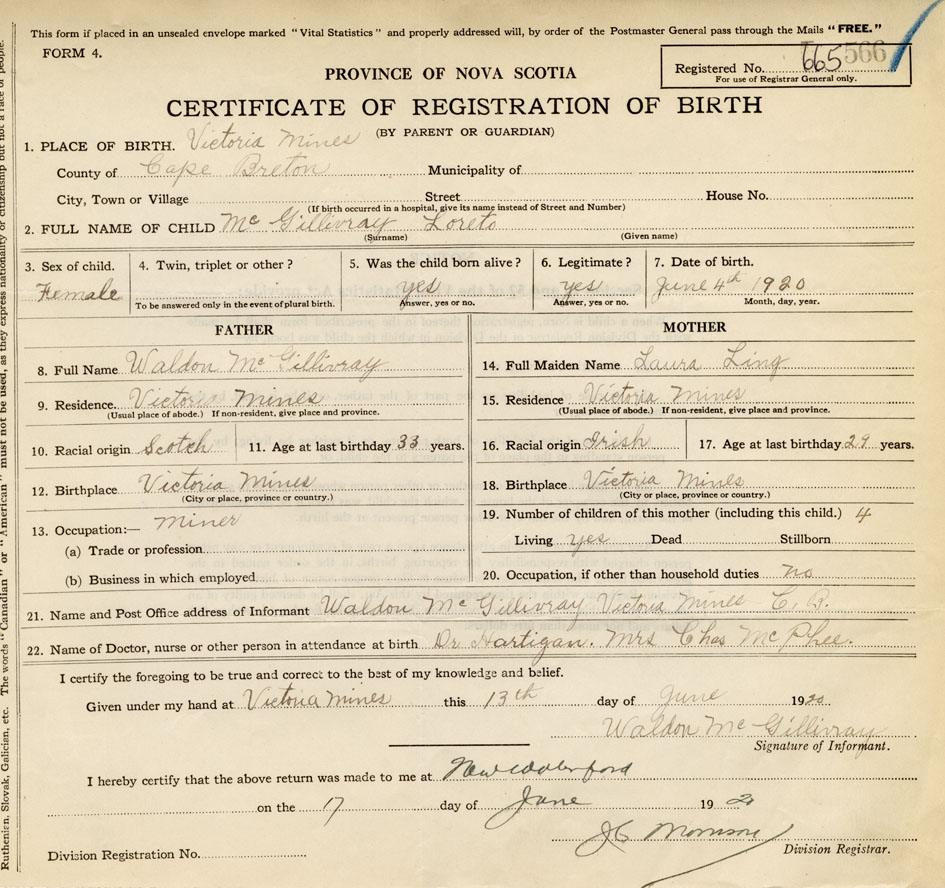 This form if placed in an unsealed envelope marked "Vital Statistics" and properly addressed will, by order of the Postmaster General pass through the Mails "FREE."
FORM 4.
Registered No. 665 566
For use of Registrar General only.
PROVINCE OF NOVA SCOTIA
CERTIFICATE OF REGISTRATION OF BIRTH
(BY PARENT OR GUARDIAN)
1. PLACE OF BIRTH. Victoria Mines
County of Cape Breton Municipality of
City, Town or Village Street House No.
(If birth occurred in a hospital, give its name instead of Street and Number)
2. FULL NAME OF CHILD Mc Gillivray Loreto
(Surname) (Given name)
3. Sex of child. 4. Twin, triplet or other? 5. Was the child born alive? 6. Legitimate? 7. Date of birth.
Female yes yes June 4th 1920
To be answered only in the event of plural birth. Answer, yes or no. Answer, yes or no. Month, day, year.
FATHER
8. Full Name Waldon Mc Gillivray
9. Residence. Victoria Mines
(Usual place of abode.) If non-resident, give place and province.
10. Racial origin Scotch 11. Age at last birthday 33 years.
12. Birthplace Victoria Mines
(City or place, province or country.)
13. Occupation:— Miner
(a) Trade or profession
(b) Business in which employed
MOTHER
14. Full Maiden Name Laura Ling
15. Residence Victoria Mines
(Usual place of abode.) If non-resident, give place and province.
16. Racial origin Irish 17. Age at last birthday 29 years.
18. Birthplace Victoria Mines
(City or place, province or country.)
19. Number of children of this mother (including this child.) 4
Living yes Dead Stillborn
20. Occupation, if other than household duties no
21. Name and Post Office address of Informant Waldon Mc Gillivray Victoria Mines C. B.
22. Name of Doctor, nurse or other person in attendance at birth Dr Hartigan. Mrs Chas McPhee.
I certify the foregoing to be true and correct to the best of my knowledge and belief.
Given under my hand at Victoria Mines this 13th day of June 1920
Waldon Mc Gillivray
Signature of Informant.
I hereby certify that the above return was made to me at New Waterford
on the 17 day of June 1920
Morrison
Division Registrar.
Division Registration No.
Ruthenien, Slovak, Galician, etc. The words "Canadian" or "American" must not be used, as they express nationality or citizenship but not a race of people.